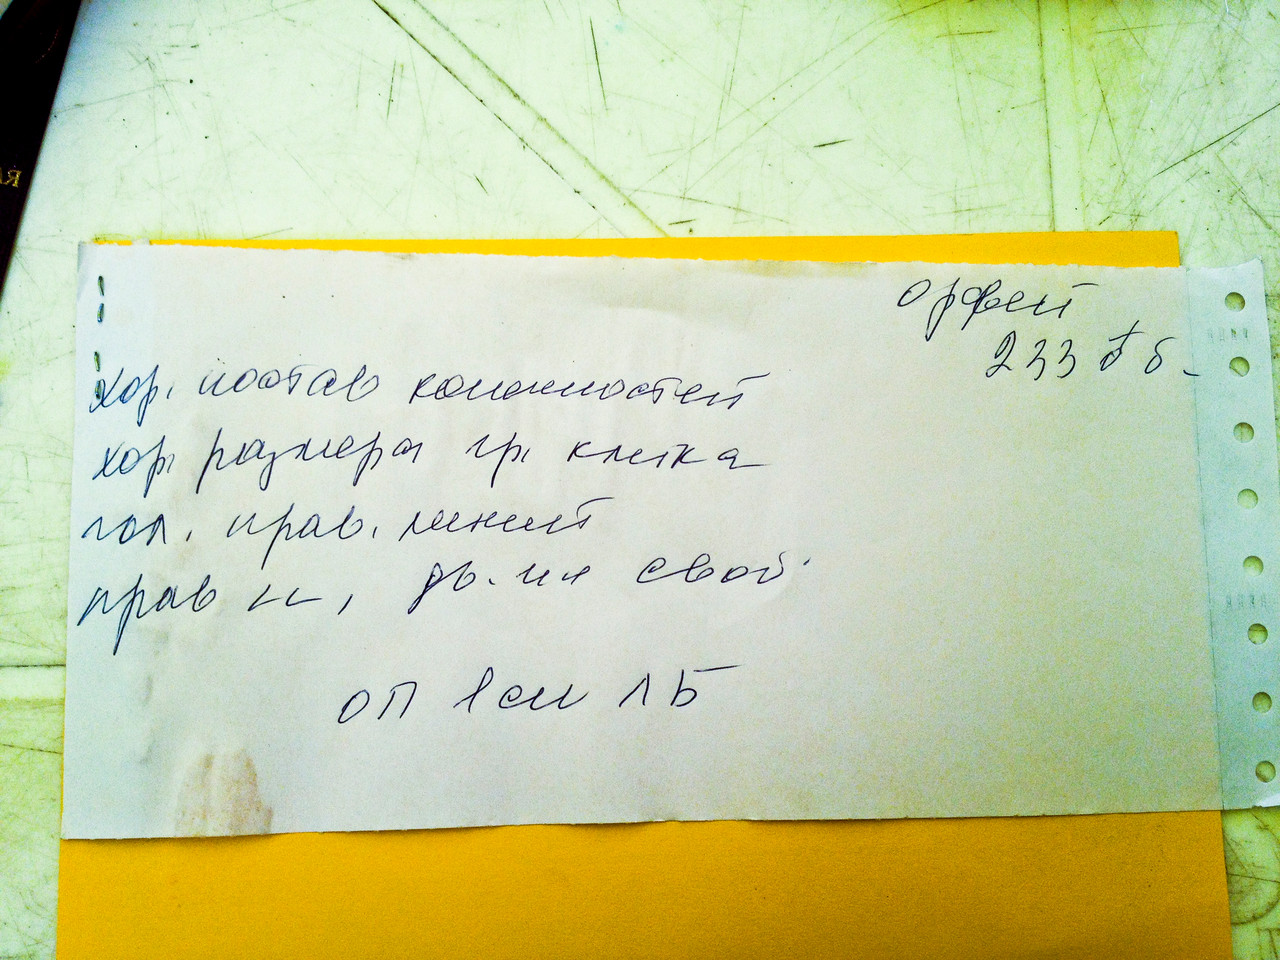 Орфей
233 б б-
хор. постав конечностей
хор. размера гр. клетка
гол. прав. линий
прав н-к, дв-ия свой.
ОП 1 см ЛБ